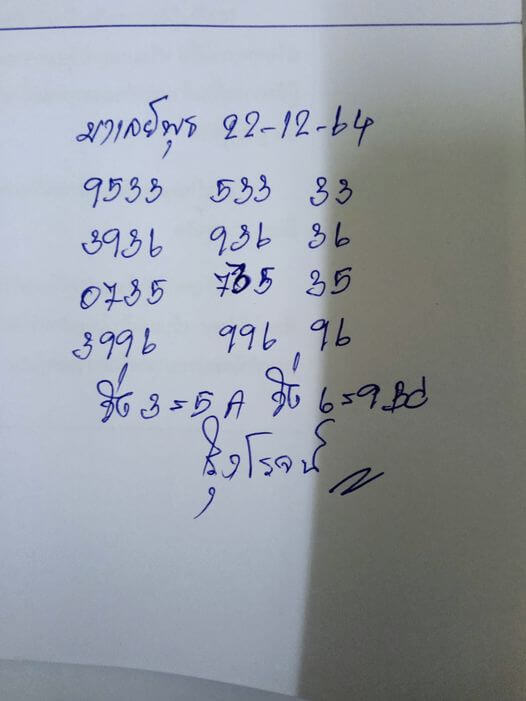 มาเลย์พุธ 22-12-64
9533 533 33
3936 936 36
0735 735 35
3996 996 96
วิ่ง 3=5 A วิ่ง 6=9 Bd
รุ่งโรจน์